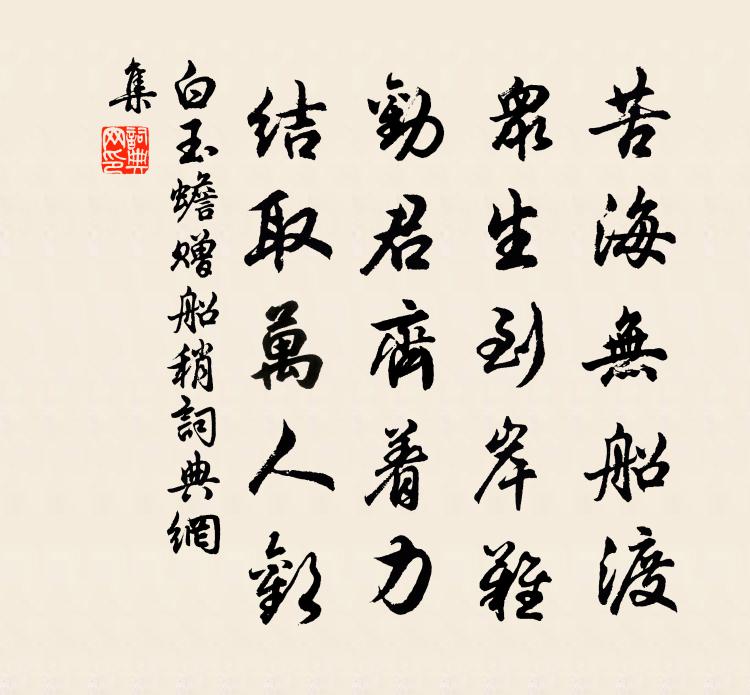 苦海無船渡
眾生到岸難
勸君齊着力
結取萬人歡
白玉蟾贈船稍詞典網
集
詞典
网印